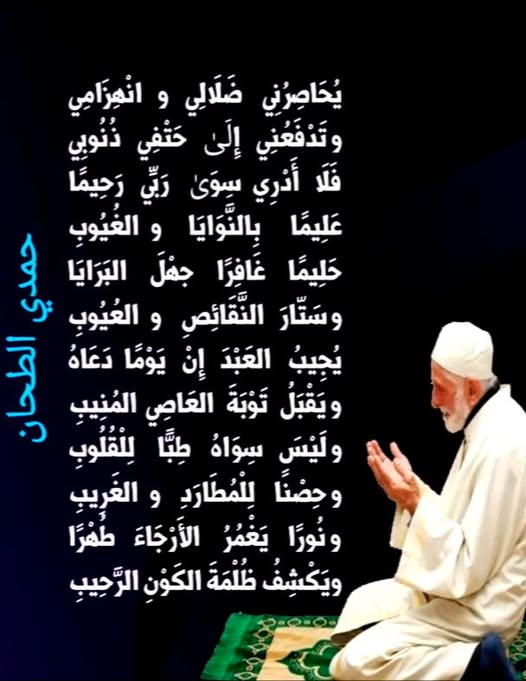 يُحَاصِرُنِي ضَلَالِي و انْهِزَامِي
وتَدْفَعُنِي إِلَىٰ حَتْفِي ذُنُوبِي
فَلَا أَدْرِي سِوَىٰ رَبِّي رَحِيمًا
عَلِيمًا بِالنَّوَايَا و الغُيُوبِ
حَلِيمًا غَافِرًا جهْلَ البَرَايَا
وسَتَّارَ النَّقَائِصِ و العُيُوبِ
يُجِيبُ العَبْدَ إِنْ يَوْمًا دَعَاهُ
ويَقْبَلُ تَوْبَةَ العَاصِي المُنِيبِ
ولَيْسَ سِوَاهُ طِبًّا لِلْقُلُوبِ
وحِصْنًا لِلْمُطَارَدِ و الغَرِيبِ
ونُورًا يَغْمُرُ الأَرْجَاءَ طُهْرًا
ويَكْشِفُ ظُلْمَةَ الكَوْنِ الرَّحِيبِ
حمدي الطحان